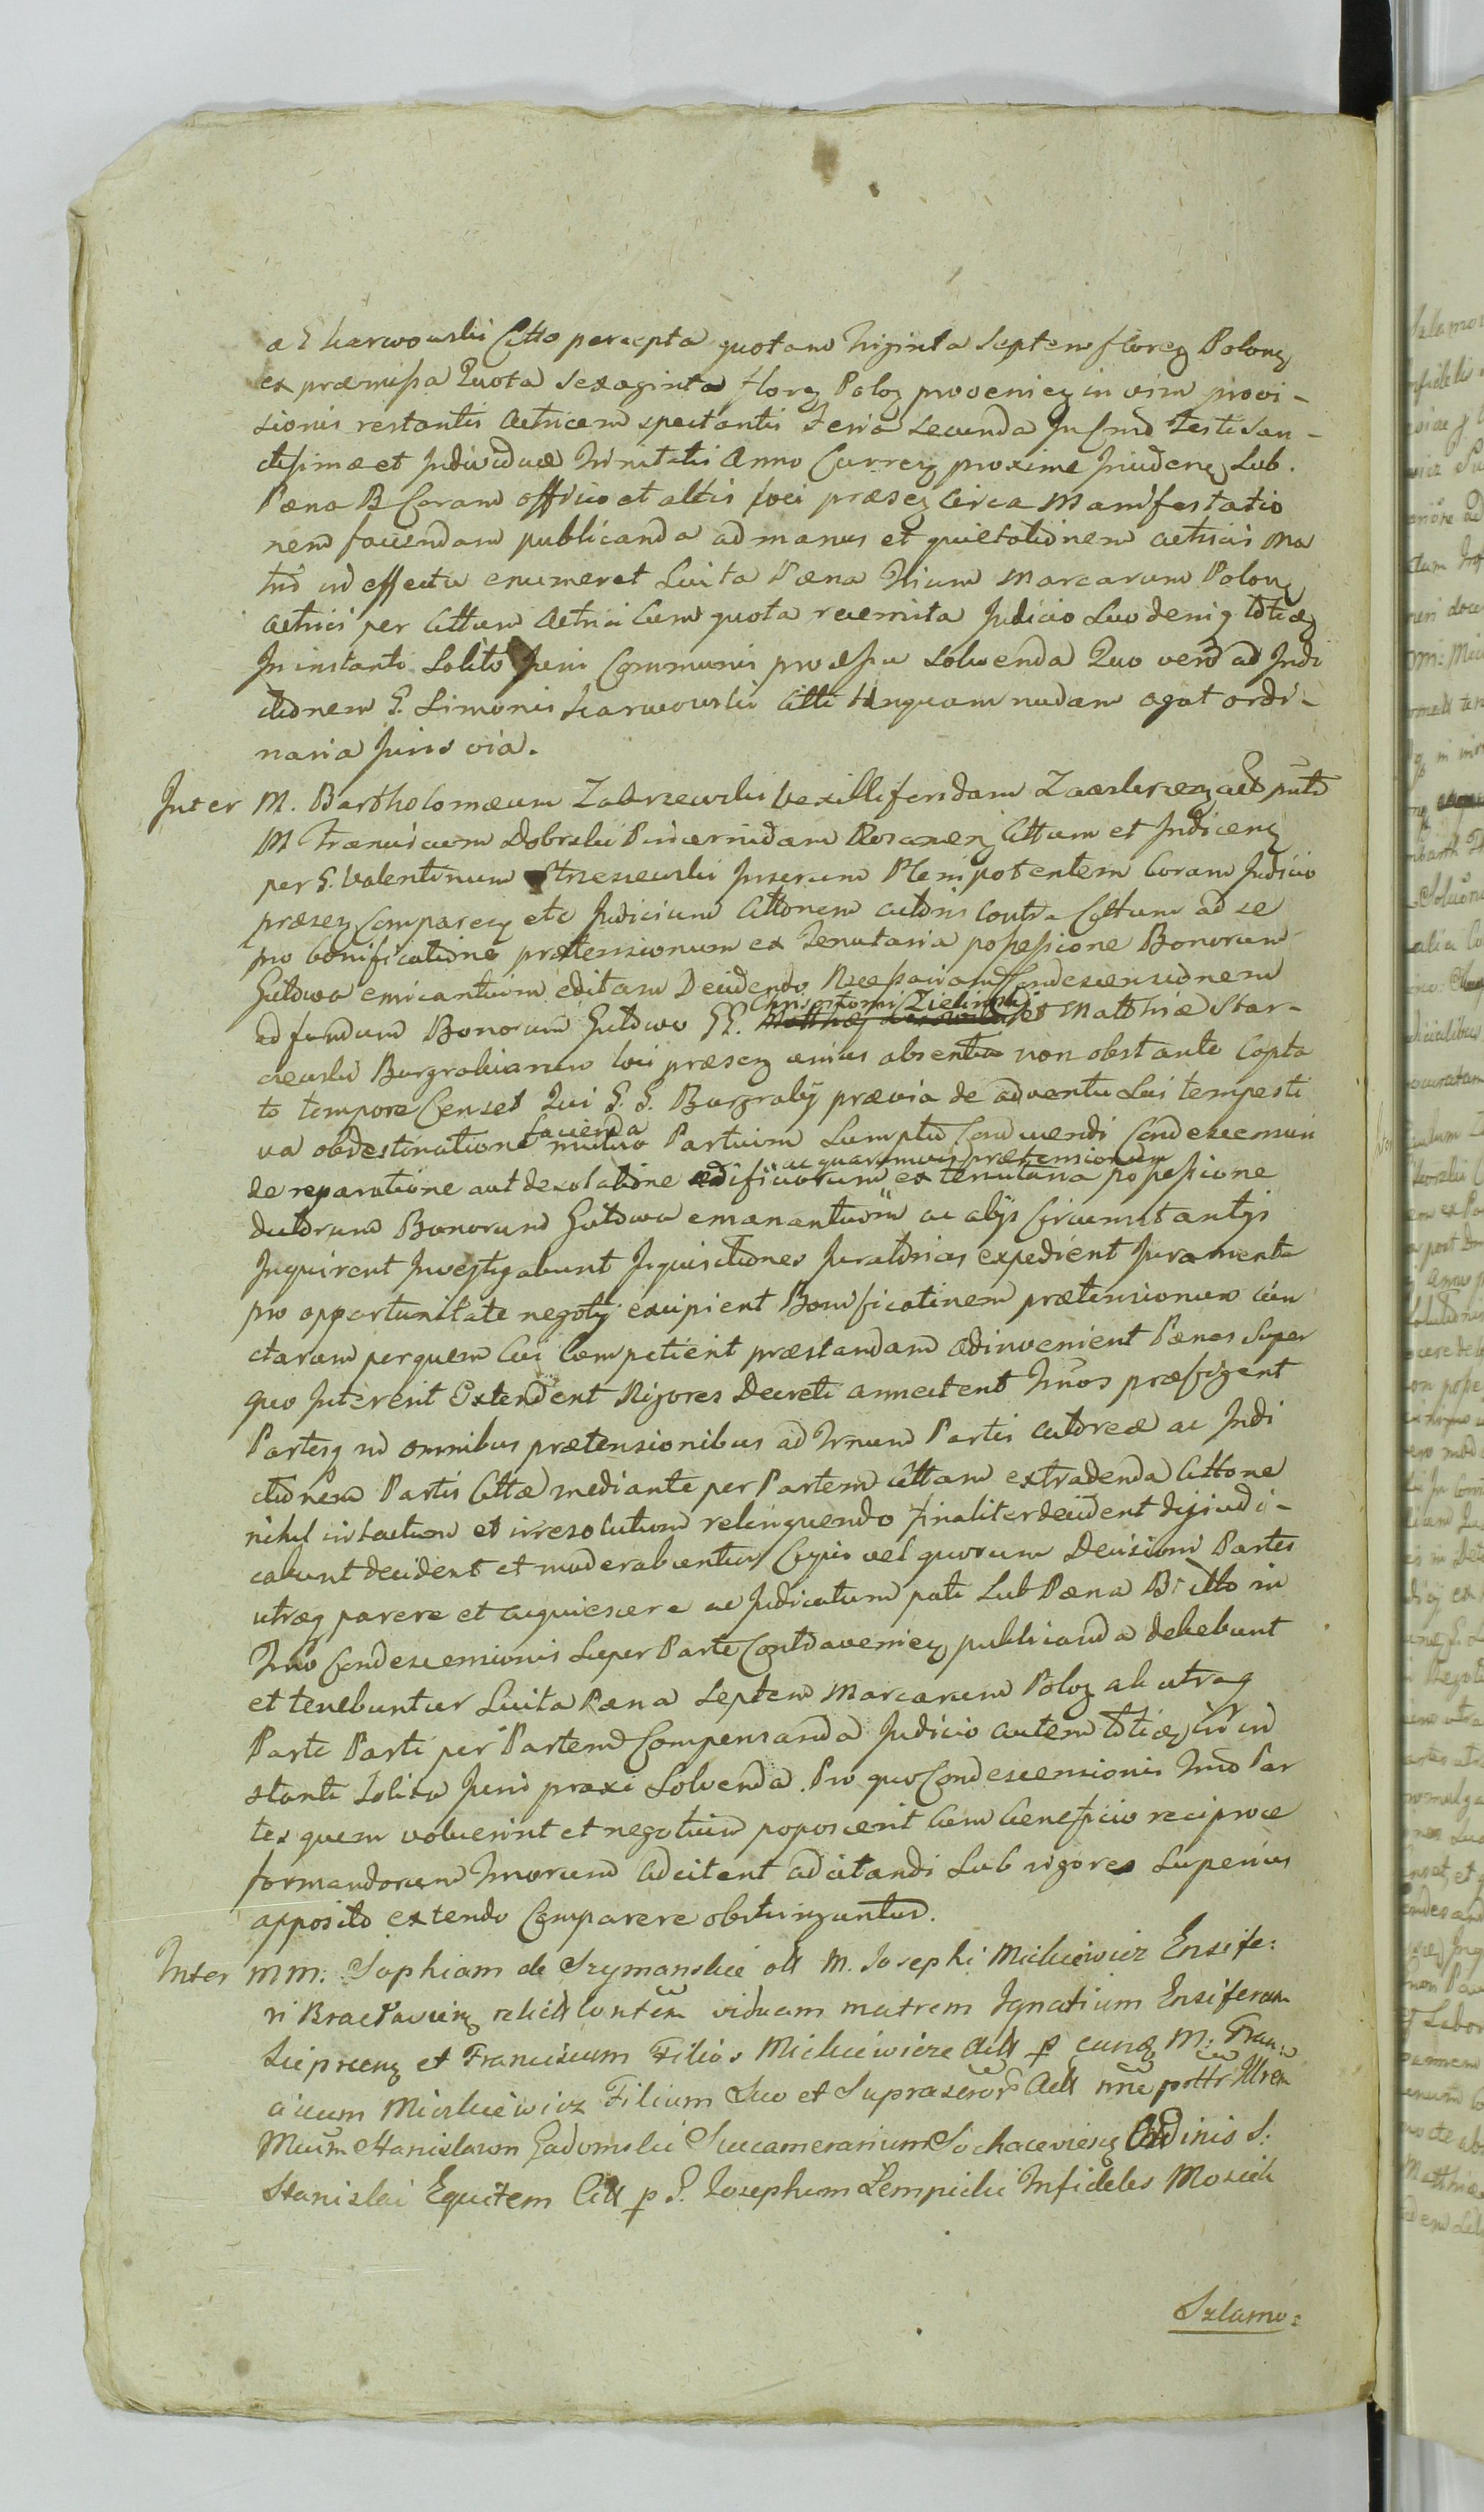 a G Karwowski Citto percepta quotam triginta Septem floreq Polonq
ex præmissa Quota Sexaginta floreq Poloq provenieq in vim provi-
sionis restantis Actricem spectantis Feria Secunda In Cnd Festi San-
ctissimæ et Individuæ Trinitatis Anno Curreq proxime Incidenq Sub
Pæna B Coram officio et actis loci præseq circa Manifestatio
nem faciendam publicanda ad manus et quietationem actricis
in effectu enumeret Luita Pæna trium Marcarum Polonq
Actrici per Cittum Actrici Cum quota recemita Judicio Suo deniq totieq
In instanti Solito Juris Communis processu Solvenda Quo vero ad Indu
ctionem G. Simonis Karwowski Citti tanquam nudam agat ordi-
naria Juris via.
Inter M. Bartholomæum Zakrzewski Vexilliferidam Zaksrzeq act
M Franciscum Dobrski Pincernidam Rozaneq Cittum et Indiceq
per G. Valentinum Strzeszewski Juratum Plenipotentem Coram Judicio
præseq Compareq etc Judicium Cittonem actoris contra Cittum ad se
pro bonificatione prætensionum ex Tenutaria possessione Bonorum
Gutowo emicantium editam Decidendo Necessariam Condescensionem
ad fundum Bonorum Gutowo GG. Chrisostomi Zielinski et Matthiæ Star-
czewski Burgrabiorum loci præseq unius absentia non obstante Capta
to tempore Censet Qui G. G. Burgrabij prævia de adventu Sui tempesti
va obdestinatione facienda mutuo Partium Sumptu Conducendi Condescensuri
de reparatione aut desolatione ædificiorum ac quarumvis prætensionum ex tenutaria possessione
dictorum Bonorum Gutowo emanantium ac alijs Circumstantijs
Inquirent Investigabunt Inquisitiones Juratorias expedient Juramenta
pro opportunitate negotij excipient Bonificationem prætensionum cun
ctarum per quem Cui Competient præstandam adinvenient Pænas Super
quo Intererit Extendent Rigores Decreti annectent Tmos præfigent
Partesq in omnibus prætensionibus ad Tmum Partis actoreæ ac Indu
ctionem Partis Cittæ mediante per Partem Cittam extradenda Cittone
nihil intactum et irresolutum relinquendo finaliter decident dijudi-
cabunt decident et moderabuntur Cujus vel quorum Decisioni Partes
utræq parere et acquiescere ac Judicatum pati Sub Pæna B illo in
Tmo Condescensionis Super Parte Contraveniеq publicanda debebunt
et tenebuntur Luita Pæna Septem Marcarum Poloq ab utraq
Parte Parti per Partem Compensanda Judicio autem totieq in in
stanti Solita Juris praxi Solvenda. Pro quo Condescensionis Tmo Par
tes quem voluerint et negotium poposcerit Cum beneficio reciproce
formandorum Tmorum adcitent adcitandi Sub rigores Superius
apposito extendo Comparere obstringuntur.
Inter MM: Sophiam de Szymanskie olt M. Josephi Mickiewicz Ensife:
ri Braclavieq relict contem viduam matrem Ignatium Ensiferum
Sieprceq et Franciscum Filios Mickiewicze Actt p eunq M: Fran:
ciscum Mickiewicz Filium Suo et Suprascror Actt nne potto Illrem
Mcum Stanislaum Gadomski Succamerarium Sochacevieq Ordinis S:
Stanislai Equitem Citt p G. Josephum Lempicki Infideles Moszek
Szlamo: